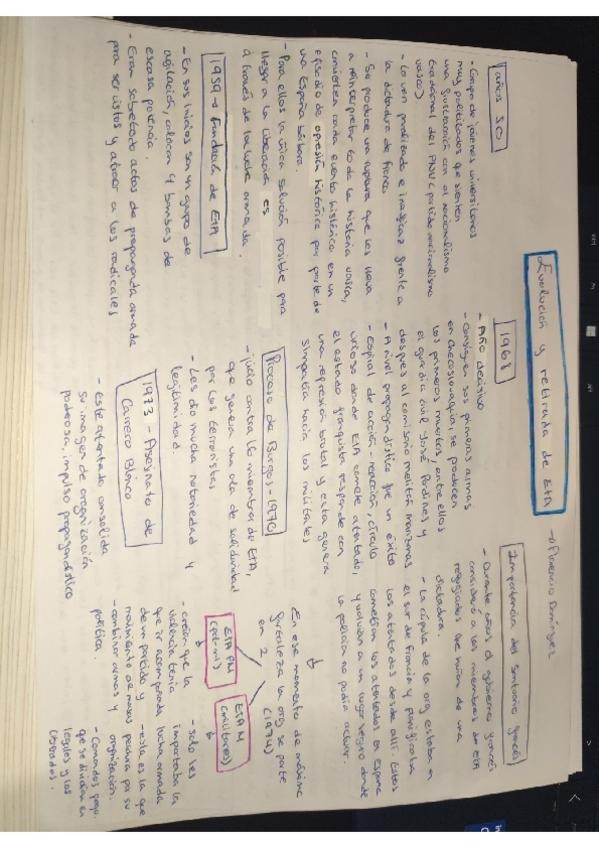 Evolución y retirada de ETA
→ Florencio Domínguez
años 50
- Grupo de jóvenes universitarios
muy politizados que sienten
una frustración con el nacionalismo
tradicional del PNV (partido nacionalista
vasco)
- Lo ven pasivo e ineficaz frente a
la dictadura de Franco
- Se produce una ruptura que les lleva
a reinterpretar toda la historia vasca,
convierten cada evento histórico en un
episodio de opresión histórica por parte de
una España bárbara.
- Para ellos la única solución posible para
llegar a la liberación es
a través de la lucha armada.
1959 → Fundación de ETA
- En sus inicios son un grupo de
agitación, colocan 4 bombas de
escasa potencia.
- Eran sobretodo actos de propaganda armada
para ser vistos y atraer a los radicales
1968
- Año decisivo
- Consiguen sus primeras armas
en Checoslovaquia, se producen
los primeros muertos, entre ellos
el guardia civil José Pardines y
después al comisario Melitón Manzanas
- A nivel propagandístico fue un éxito
- Espiral de acción - reacción, círculo
vicioso donde ETA comete atentado,
el estado franquista responde con
una represión brutal y esta genera
simpatía hacia los militantes
Proceso de Burgos - 1970
- juicio contra 16 miembros de ETA,
que genera una ola de solidaridad
por los terroristas
- Les dio mucha notoriedad y
legitimidad
1973 - Asesinato de
Carrero Blanco
- este atentado consolida
su imagen de organización
poderosa, impulso propagandístico
Importancia del santuario francés
- Durante años el gobierno francés
consideró a los miembros de ETA
refugiados que huían de una
dictadura.
- La cúpula de la org estaba en
el sur de Francia y planificaba
los atentados desde allí. Estos
cometían los atentados en España
y volvían a un lugar seguro donde
la policía no podía actuar.
↓
En ese momento de máxima
fortaleza la org se parte
en 2 (1974)
ETA PM
(poli-mi)
- creían que la
violencia tenía
que ir acompañada
de un partido y
movimiento de masas
- combinar armas y
política.
ETA M
(militares)
- solo les
importaba la
lucha armada
- esta es la que
perdura por su
organización.
- Comandos
que se dividían en
legales y los
liberados.